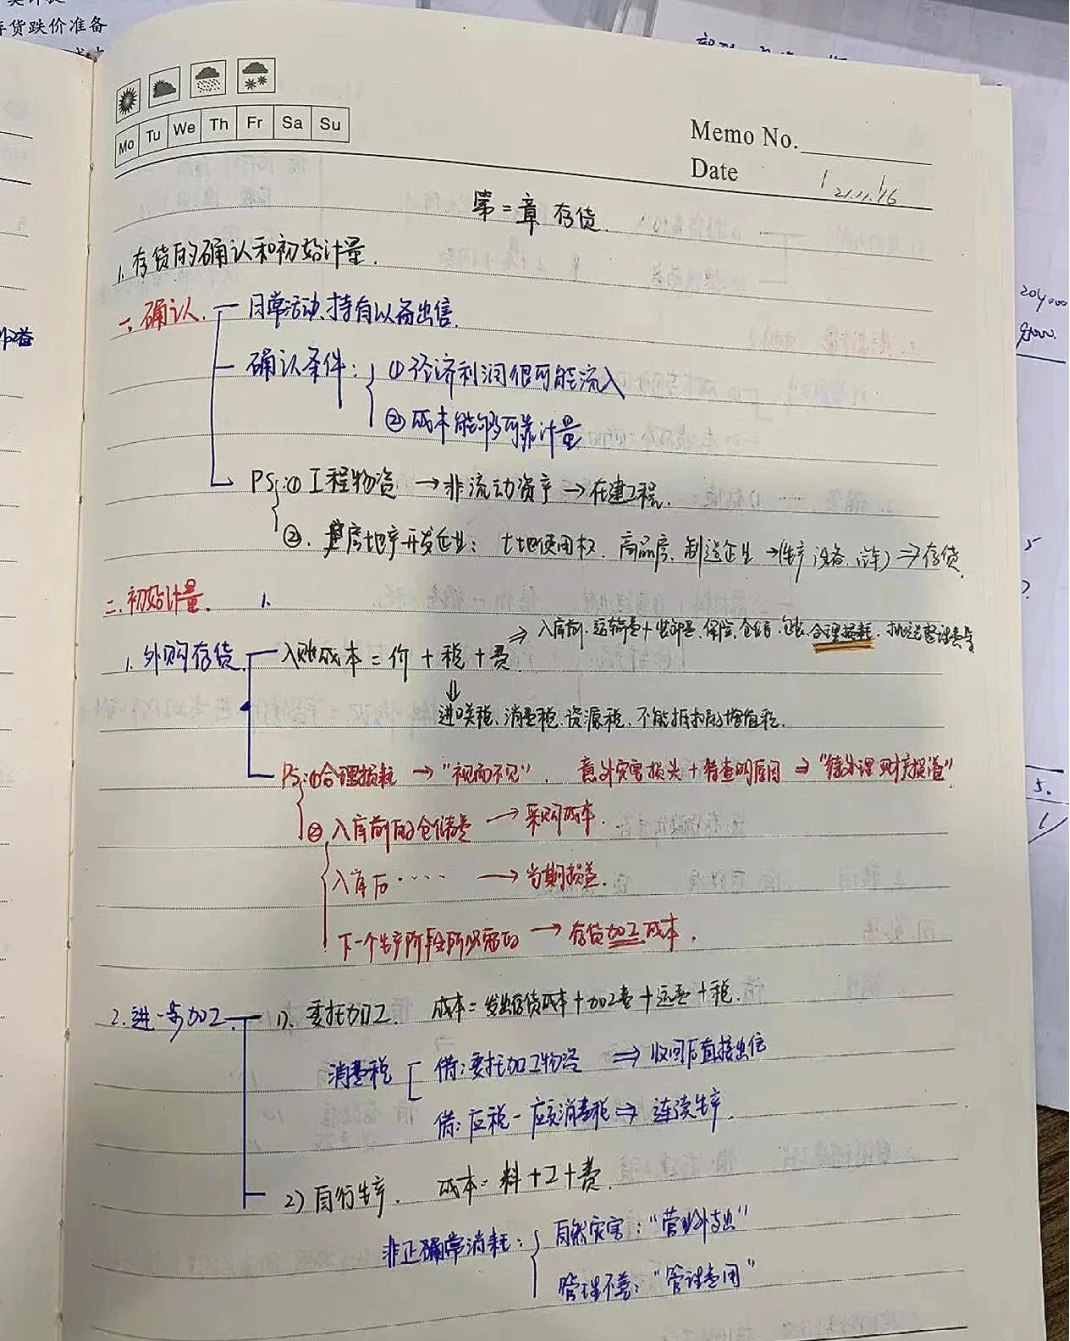 存货跌价准备
Mo Tu We Th Fr Sa Su
Memo No.
Date 21.11.16
第二章 存货.
1. 存货的确认和初始计量.
一、确认.
日常活动、持有以备出售.
确认条件: ①经济利润很可能流入
②成本能够可靠计量
PS: ①工程物资 → 非流动资产 → 在建工程.
②. 房地产开发企业: 土地使用权、商品房、制造企业 → (生产设备、) ⇒ 存货.
二、初始计量. 1.
⇒ 入库前、运输费+装卸费、保险、仓储、包装、合理损耗、挑选整理费等
1. 外购存货 入账成本 = 价 + 税 + 费
⇓
进口关税、消费税、资源税、不能抵扣的增值税.
PS: ①合理损耗 → "视而不见", 意外灾害损失 + 待查明原因 ⇒ "待处理财产损溢"
② 入库前的仓储费 → 采购成本.
入库后 · · · · · → 当期损益.
下一个生产阶段所必需的 → 存货加工成本.
2. 进一步加工 1). 委托加工. 成本 = 发出存货成本 + 加工费 + 运费 + 税.
消费税 借: 委托加工物资 ⇒ 收回后直接出售
借: 应税-应交消费税 ⇒ 连续生产.
2) 自行生产. 成本 = 料 + 工 + 费.
非正常消耗: 自然灾害: "营业外支出"
管理不善: "管理费用"
204,000
5.